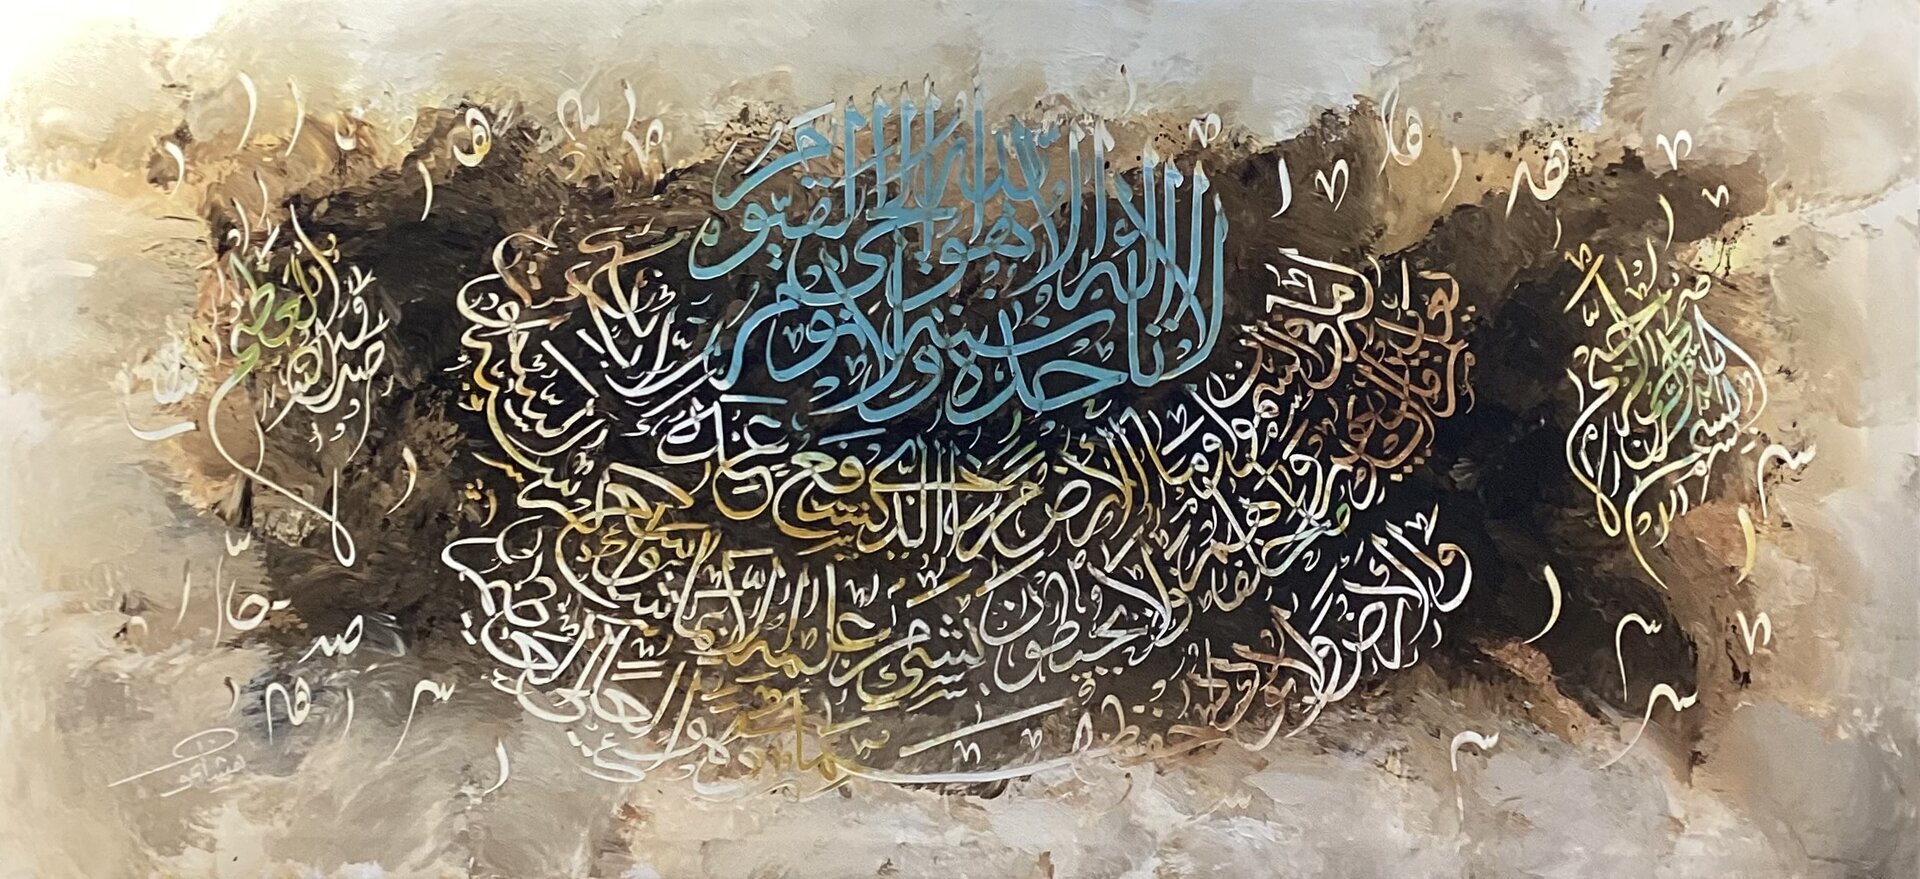 بسم الله الرحمن الرحيم
الله لا إله إلا هو الحي القيوم
لا تأخذه سنة ولا نوم
له ما في السموات وما في الأرض من ذا الذي يشفع عنده إلا بإذنه
يعلم ما بين أيديهم وما خلفهم ولا يحيطون بشيء من علمه إلا بما شاء وسع كرسيه السموات
والأرض ولا يؤوده حفظهما وهو العلي العظيم
صدق الله العظيم